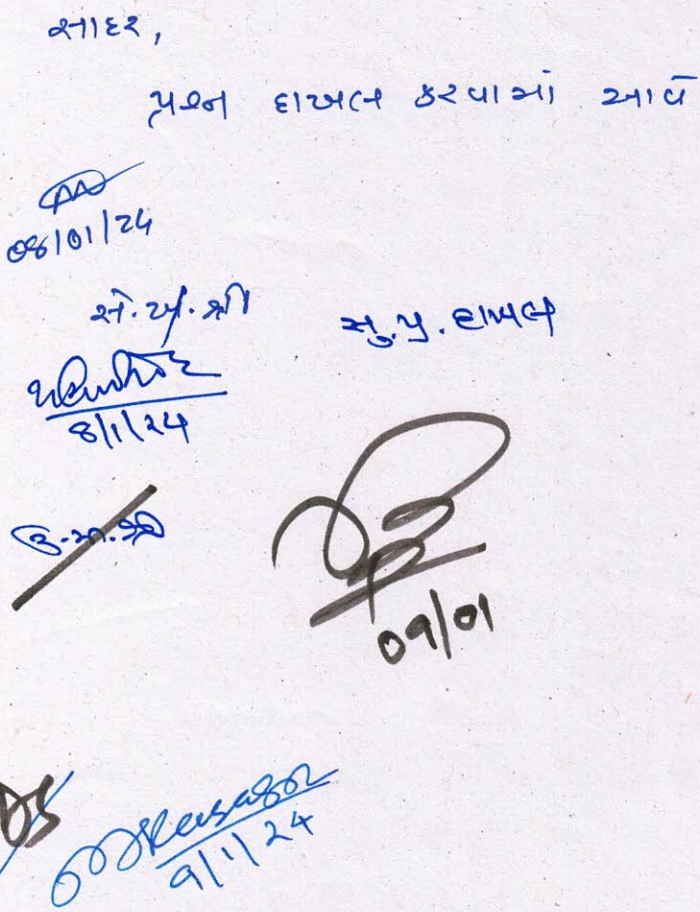 સાદર,
પ્રશ્ન દાખલ કરવામાં આવે
08/01/24
સે.અ.શ્રી
સુ.પ્ર. દાખલ
8/1/24
ઉ.સ.શ્રી
09/01
DS
9/1/24